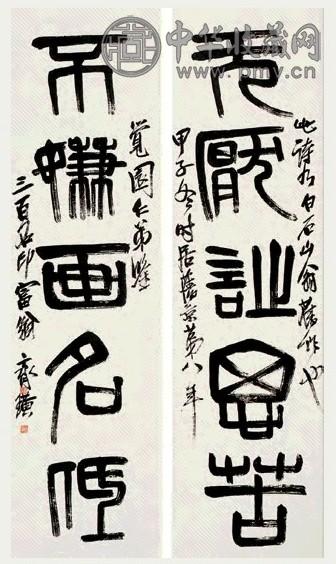 中华收藏网
厭詩思苦
此詩乃白石山翁舊作也
甲子冬時居舊京第八年
不嫌画名低
覺園仁弟鑒
三百石印富翁齊璜